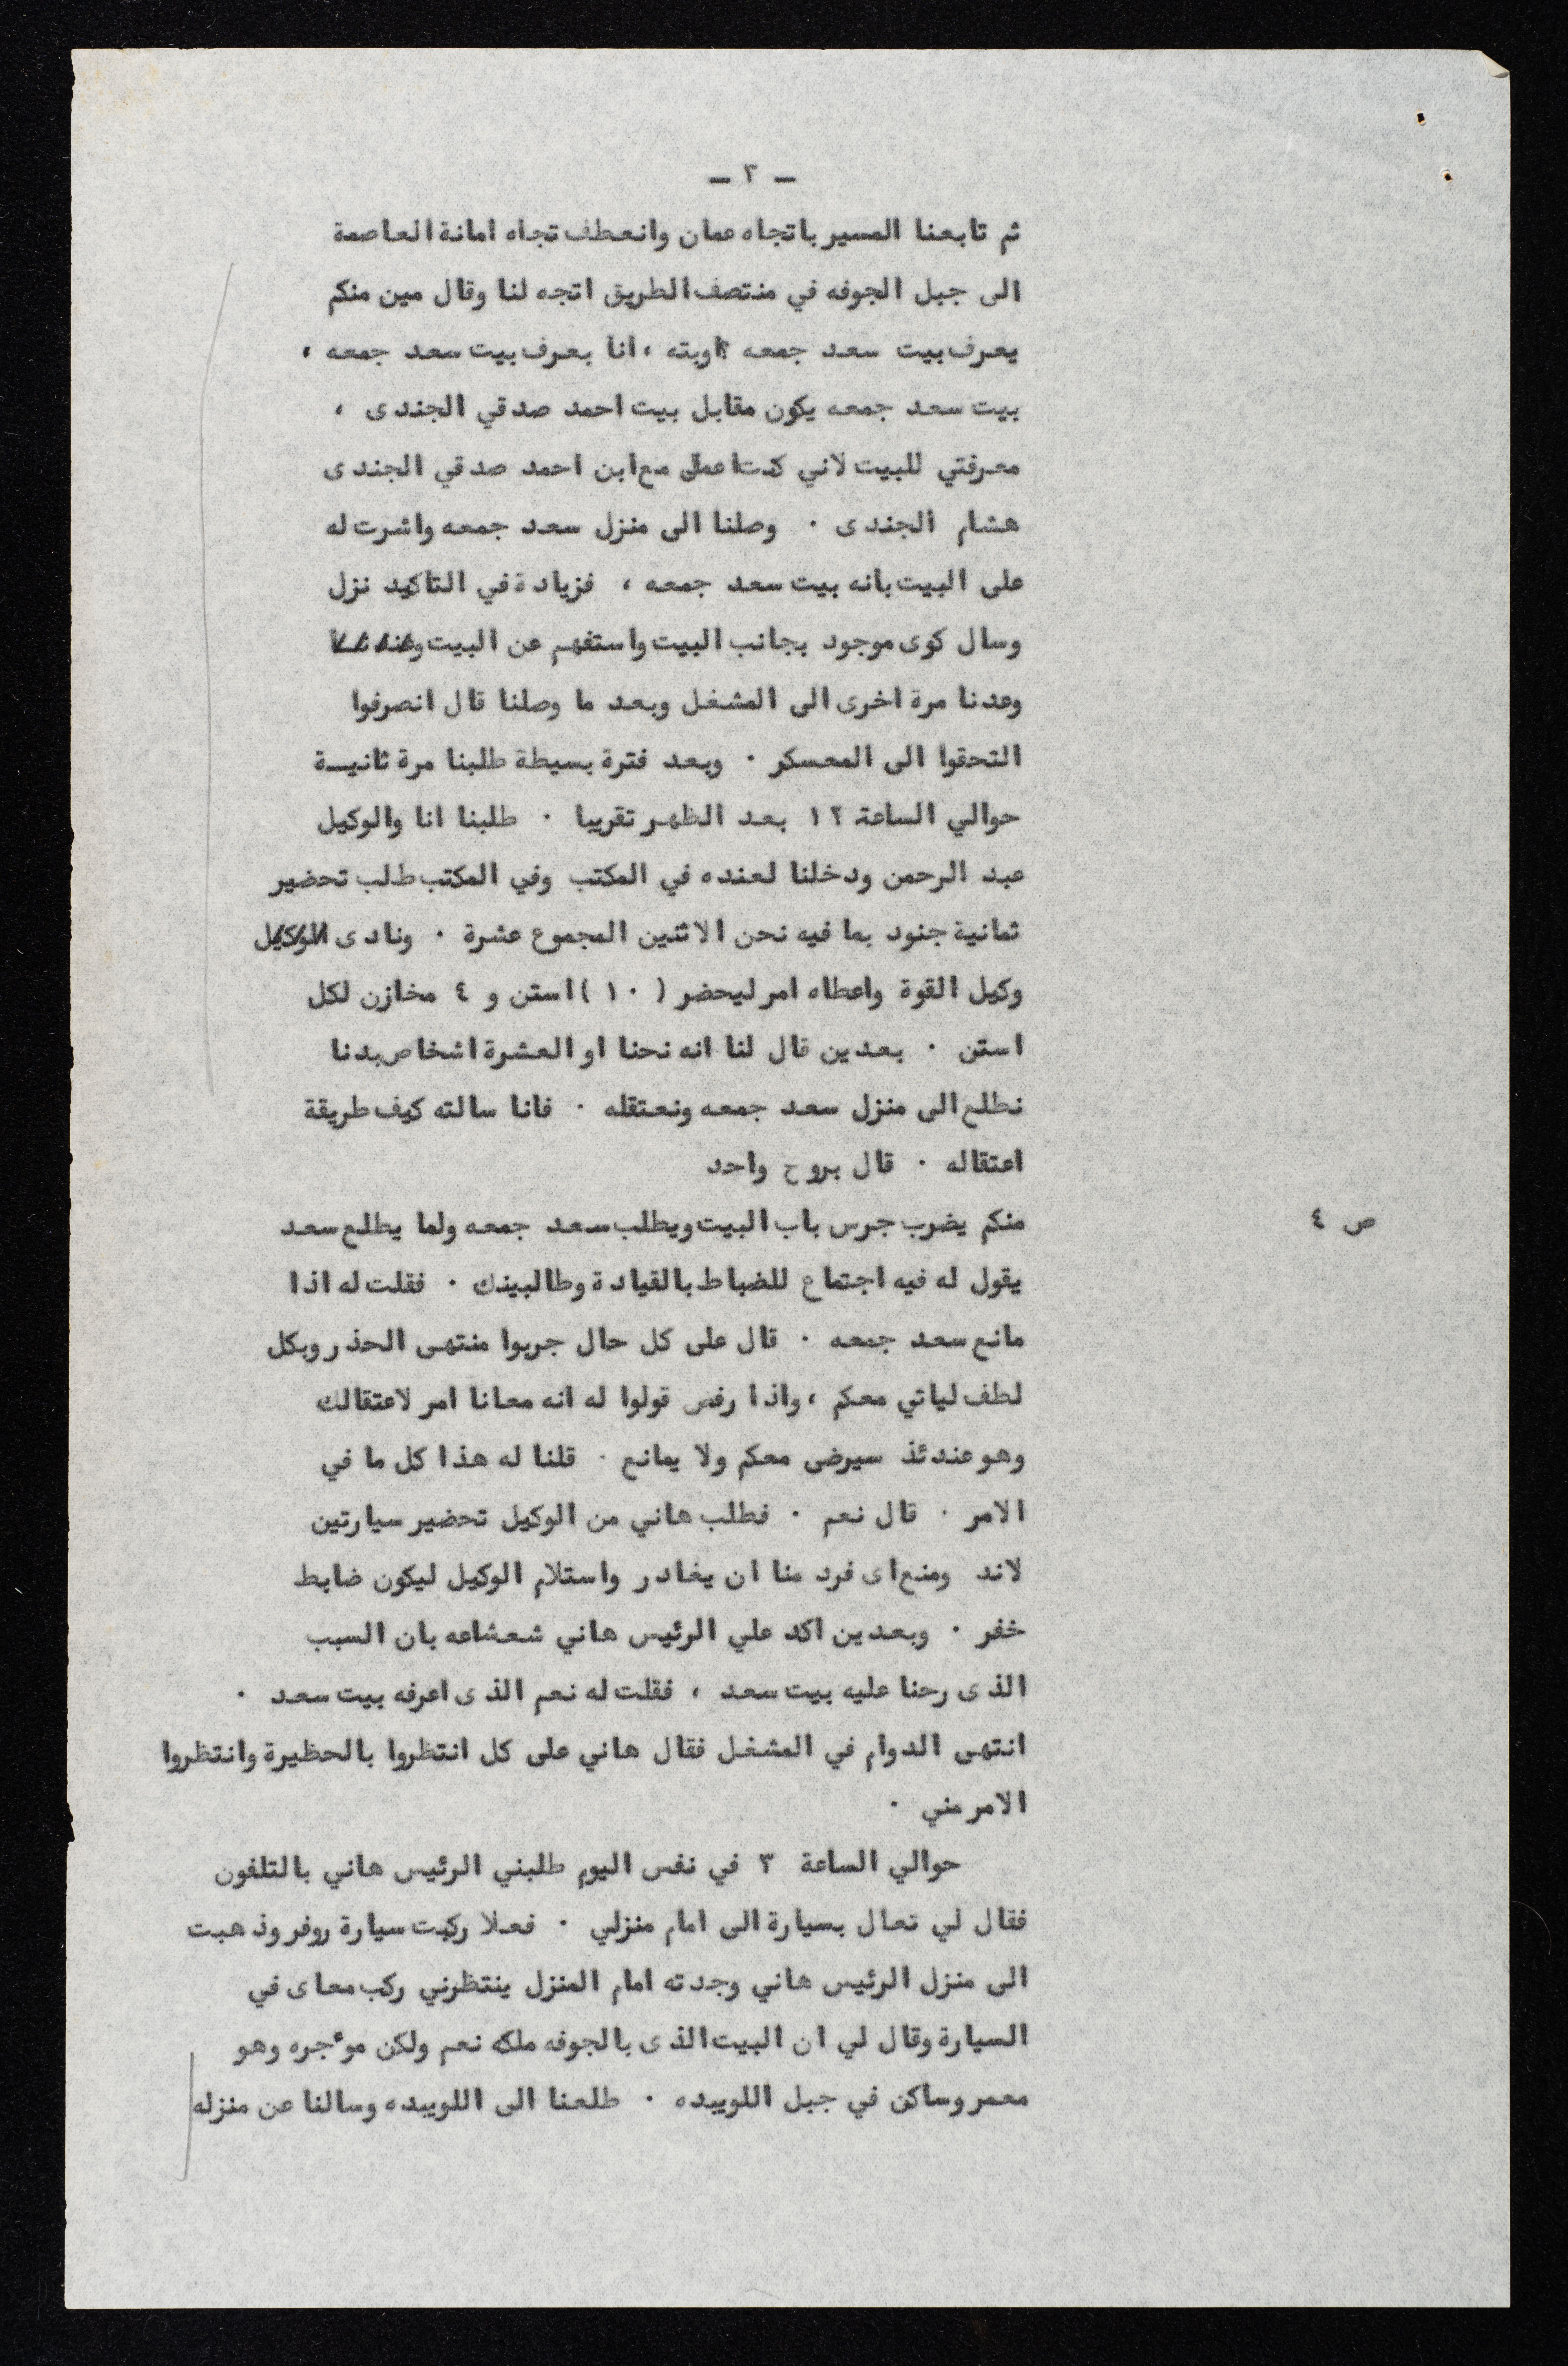 – ٣ –
ثم تابعنا المسير باتجاه عمان وانعطف تجاه امانة العاصمة
الى جبل الجوفه في منتصف الطريق اتجه لنا وقال مين منكم
يعرف بيت سعد جمعه ؟اوبته ، انا بعرف بيت سعد جمعه ،
بيت سعد جمعه يكون مقابل بيت احمد صدقي الجندى ،
معرفتي للبيت لاني كنت اعمل مع ابن احمد صدقي الجندى
هشام الجندى . وصلنا الى منزل سعد جمعه واشرت له
على البيت بانه بيت سعد جمعه ، فزيادة في التاكيد نزل
وسال كوى موجود بجانب البيت واستفهم عن البيت
وعدنا مرة اخرى الى المشغل وبعد ما وصلنا قال انصرفوا
التحقوا الى المعسكر . وبعد فترة بسيطة طلبنا مرة ثانيــة
حوالي الساعة ١٢ بعد الظهر تقريبا . طلبنا انا والوكيل
عبد الرحمن ودخلنا لعنده في المكتب وفي المكتب طلب تحضير
ثمانية جنود بما فيه نحن الاثنين المجموع عشرة . ونادى الوكيل
وكيل القوة واعطاه امر ليحضر ( ١٠ ) استن و ٤ مخازن لكل
استن . بعدين قال لنا انه نحنا او العشرة اشخاص بدنا
نطلع الى منزل سعد جمعه ونعتقله . فانا سالته كيف طريقة
اعتقاله . قال بروح واحد
ص ٤
منكم يضرب جرس باب البيت ويطلب سعد جمعه ولما يطلع سعد
يقول له فيه اجتماع للضباط بالقيادة وطالبينك . فقلت له اذا
مانع سعد جمعه . قال على كل حال جربوا منتهى الحذر وبكل
لطف لياتي معكم ، واذا رفض قولوا له انه معانا امر لاعتقالك
وهو عندئذ سيرضى معكم ولا يمانع . قلنا له هذا كل ما في
الامر . قال نعم . فطلب هاني من الوكيل تحضير سيارتين
لاند ومنع اى فرد منا ان يغادر واستلام الوكيل ليكون ضابط
خفر . وبعدين اكد علي الرئيس هاني شعشاعه بان السبب
الذى رحنا عليه بيت سعد ، فقلت له نعم الذى اعرفه بيت سعد .
انتهى الدوام في المشغل فقال هاني على كل انتظروا بالحظيرة وانتظروا
الامر مني .
حوالي الساعة ٣ في نفس اليوم طلبني الرئيس هاني بالتلفون
فقال لي تعال بسيارة الى امام منزلي . فعلا ركبت سيارة روفر وذهبت
الى منزل الرئيس هاني وجدته امام المنزل ينتظرني ركب معاى في
السيارة وقال لي ان البيت الذى بالجوفه ملكه نعم ولكن موءجره وهو
معمر وساكن في جبل اللويبده . طلعنا الى اللويبده وسالنا عن منزله